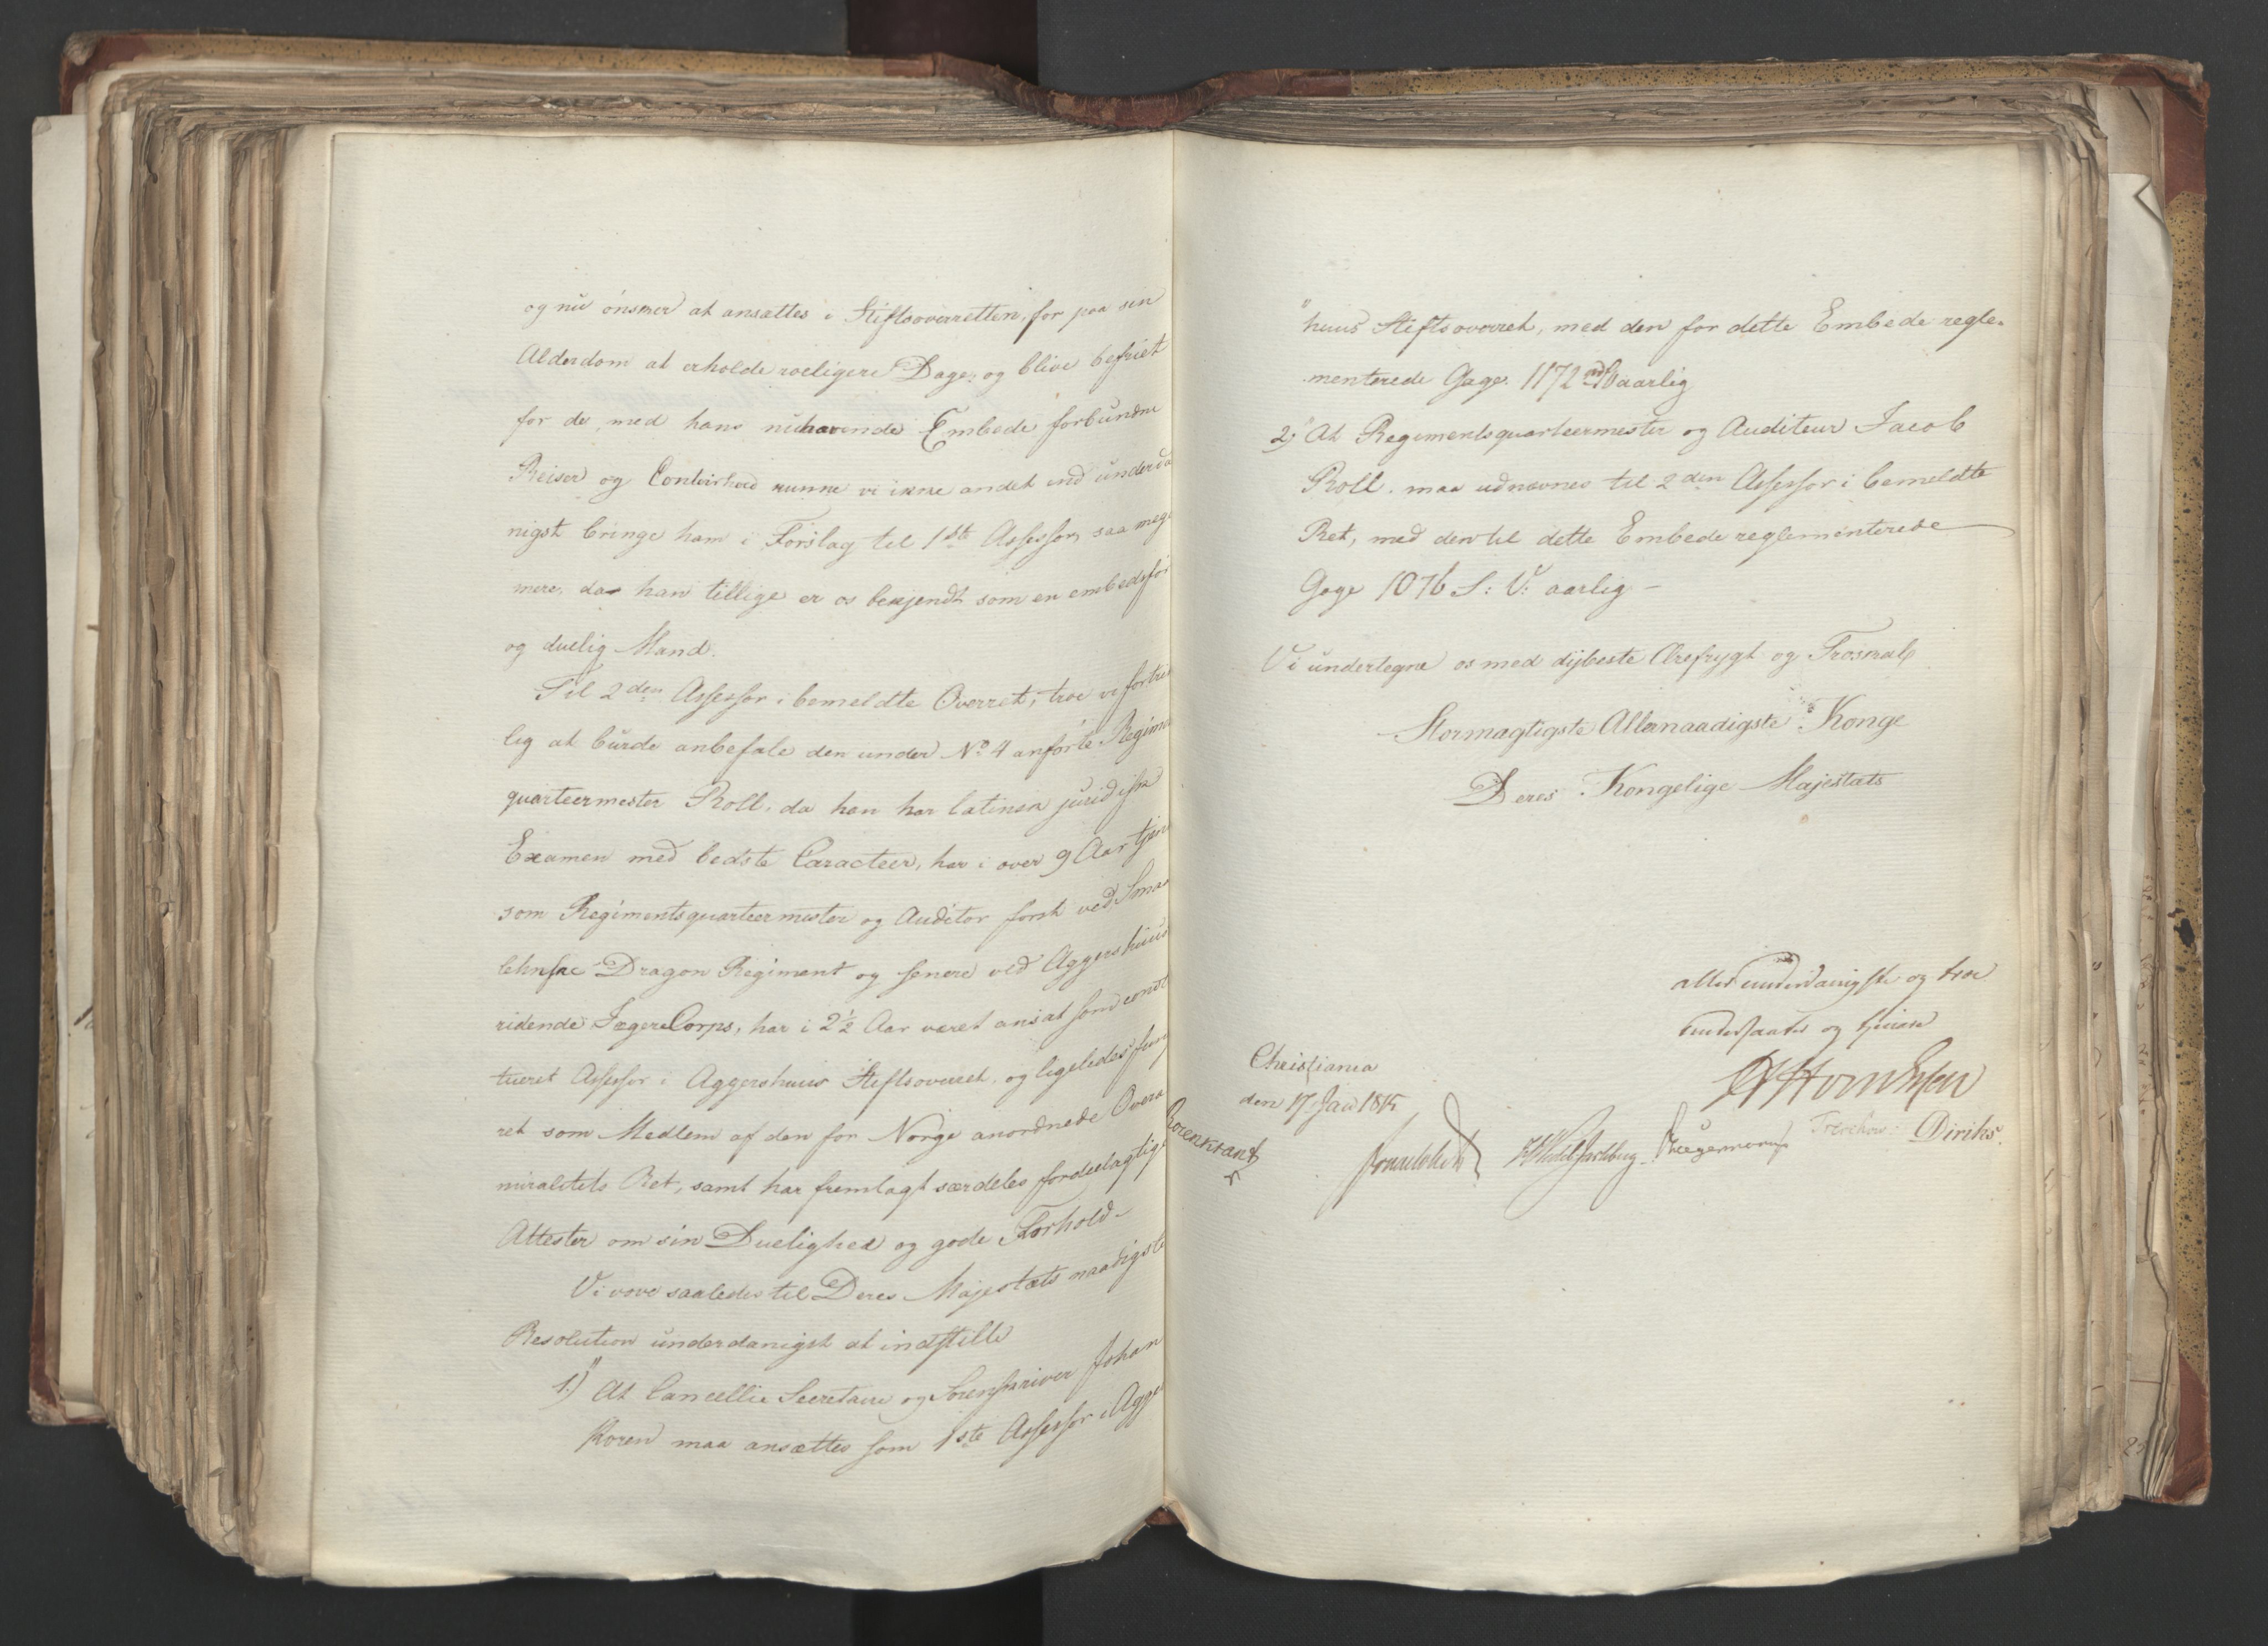 og nu ønsker at ansættes i Stiftsoverretten, for paa sin
Alderdom at erholde roeligere Dage, og blive befriet
for de, med hans nuhavende Embede forbundne
Reiser og Contoirhold kunne vi ikke andet end underda
nigst bringe ham i Forslag til 1ste Assessor, saa mege
mere, da han tillige er os bekjendt som en embedsfør
og duelig Mand.
Til 2den Assessor i bemeldte Overret, troe vi fortrin
lig at burde anbefale den under No 4 anførte Regime
quarteermester Roll, da han har latinsk juridisk
Examen med bedste Caracteer, har i over 9 Aar tjent
som Regimentsquarteermester og Auditør først ved Smaa
lehnske Dragon Regiment og senere ved Aggershuus
ridende JægereCorps, har i 2½ Aar været ansat som const
tueret Assessor i Aggershuus Stiftsoverret, og ligeledes fung
ret som Medlem af den for Norge anordnede Overa
miralitets Ret, samt har fremlagt særdeles fordeelagtige
Attester om sin Duelighed og gode Forhold.
Vi vove saaledes til Deres Majestæts naadigste
Resolution underdanigst at indstille
1.) At Cancellie Secretaire og Sorenskriver Johan
Koren maa ansættes som 1ste Assessor i Agger
huus Stiftsoverret, med den for dette Embede regle-
menterede Gage. 1172 rd aarlig
2) At Regimentsquarteermester og Auditeur Jacob
Roll. maa udnævnes til 2den Assessor i bemeldte
Ret, med den til dette Embede reglementerede
Gage 1076 S: V: aarlig –
Vi undertegne os med dybeste Ærefrygt og Troskab
Stormægtigste Allernaadigste Konge
Deres Kongelige Majestæts
allerunderdanigste og troe
undersaatter og tjenere
Christiania
den 17 Jan 1815
Rosenkrantz
Treschow Diriks.